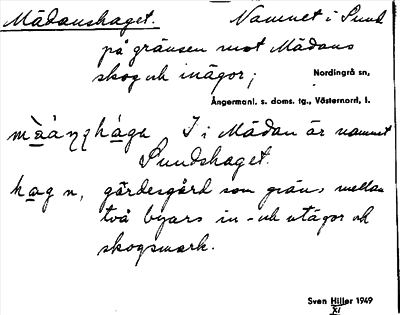 Mädanshaget. Namnet i Sund
på gränsen mot Mädans
skog och inägor;
Nordingrå sn,
Ångermanl. s. doms. tg., Västernorrl. l.
I i Mädan är namnet
Sundshaget.
hag n, gärdesgård som gräns mellan
två byars in- och utägor och
skogsmark.
Sven Hiller 1949
XI